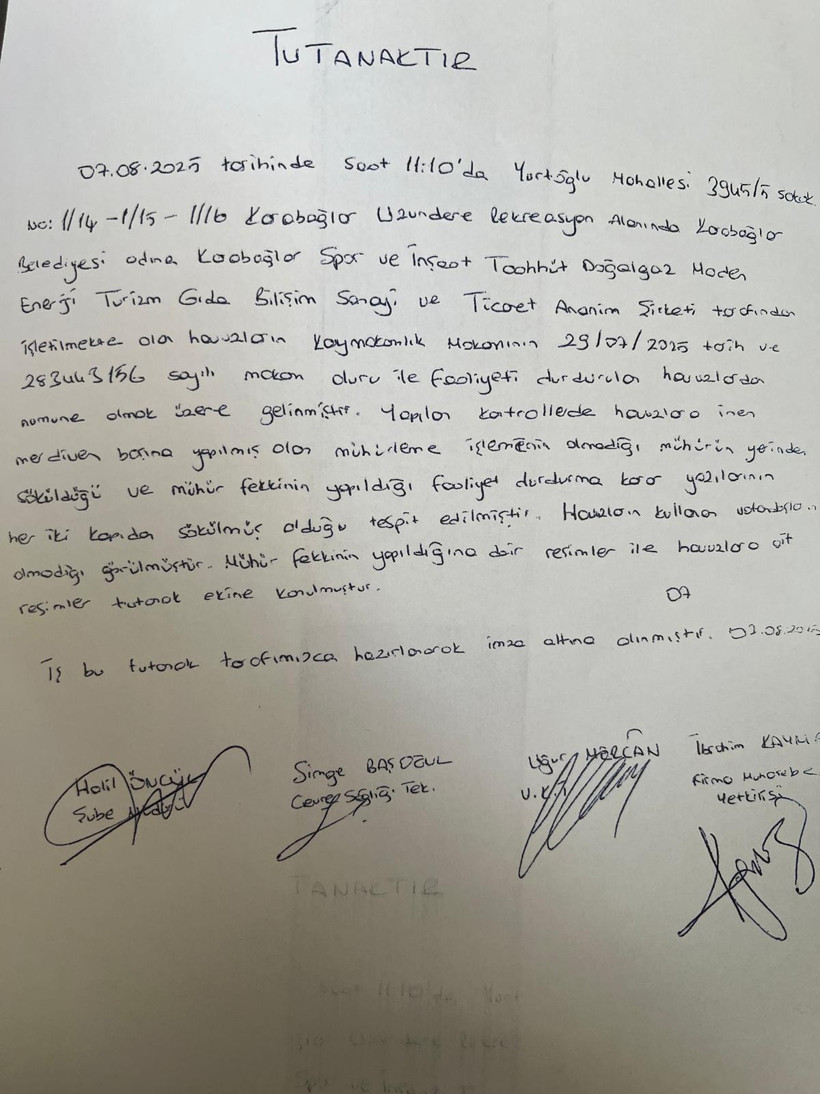 TUTANAKTIR
07.08.2025 tarihinde saat 11:10'da Yurtoğlu Mahallesi 3945/5 sokak
No: 1/14 - 1/15 - 1/16 Karabağlar Uzundere Rekreasyon Alanında Karabağlar
Belediyesi adına Karabağlar Spor ve İnşaat Taahhüt Doğalgaz Maden
Enerji Turizm Gıda Bilişim Sanayi ve Ticaret Anonim Şirketi tarafından
işletilmekte olan havuzların Kaymakamlık Makamının 29/07/2025 tarih ve
283443156 sayılı makam oluru ile faaliyeti durdurulan havuzlardan
numune almak üzere gelinmiştir. Yapılan kontrollerde havuzlara inen
merdiven başına yapılmış olan mühürleme işleminin olmadığı mühürün yerinden
söküldüğü ve mühür fekkinin yapıldığı faaliyet durdurma karar yazılarının
her iki kapıda sökülmüş olduğu tespit edilmiştir. Havuzların kullanan
olmadığı görülmüştür. Mühür fekkinin yapıldığına dair resimler ile havuzlara ait
resimler tutanak ekine konulmuştur.
07
İş bu tutanak tarafımızca hazırlanarak imza altına alınmıştır. 07.08.2025
Halil ÖNCÜL Simge BAŞOĞUL Uğur MERCAN İbrahim
Şube Çevre Sağlığı Tek. Firma Muhasebe
Yetkilisi
TANAKTIR